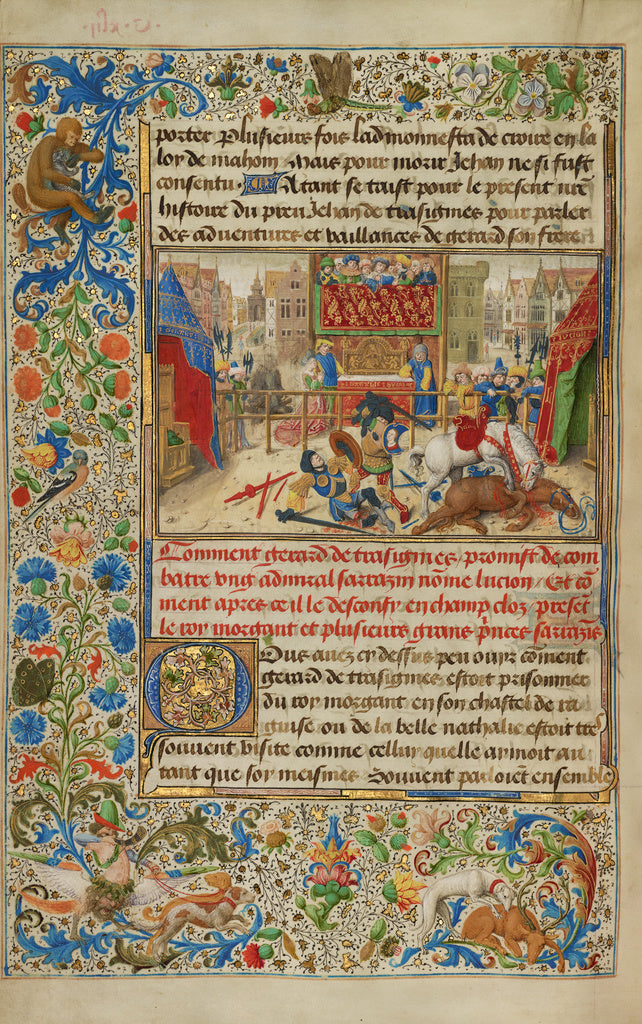 porter plusieurs fois ladmonnesta de croire en la
loy de mahom Mais pour morir Jehan ne si fust
consentu Atant se taist pour le present nre
histoire du preu Jehan de trasignies pour parler
des aduentures et vaillances de gerard son frere
Comment gerard de trasignies / promist de com
batre vng admiral sarrazin nōme lucion / Et cō
ment apres ce il le desconfy en champ cloz / present
le roy morgant et plusieurs grans prīces sarrazīs
Ous auez cy dessus peu ouyr cōment
gerard de trasignies estoit prisonnier
du roy morgant en son chastel de ra
guise ou de la belle nathalie estoit tres
souuent visite comme celluy quelle aymoit au
tant que soy meismes Souuent parloiēt ensemble